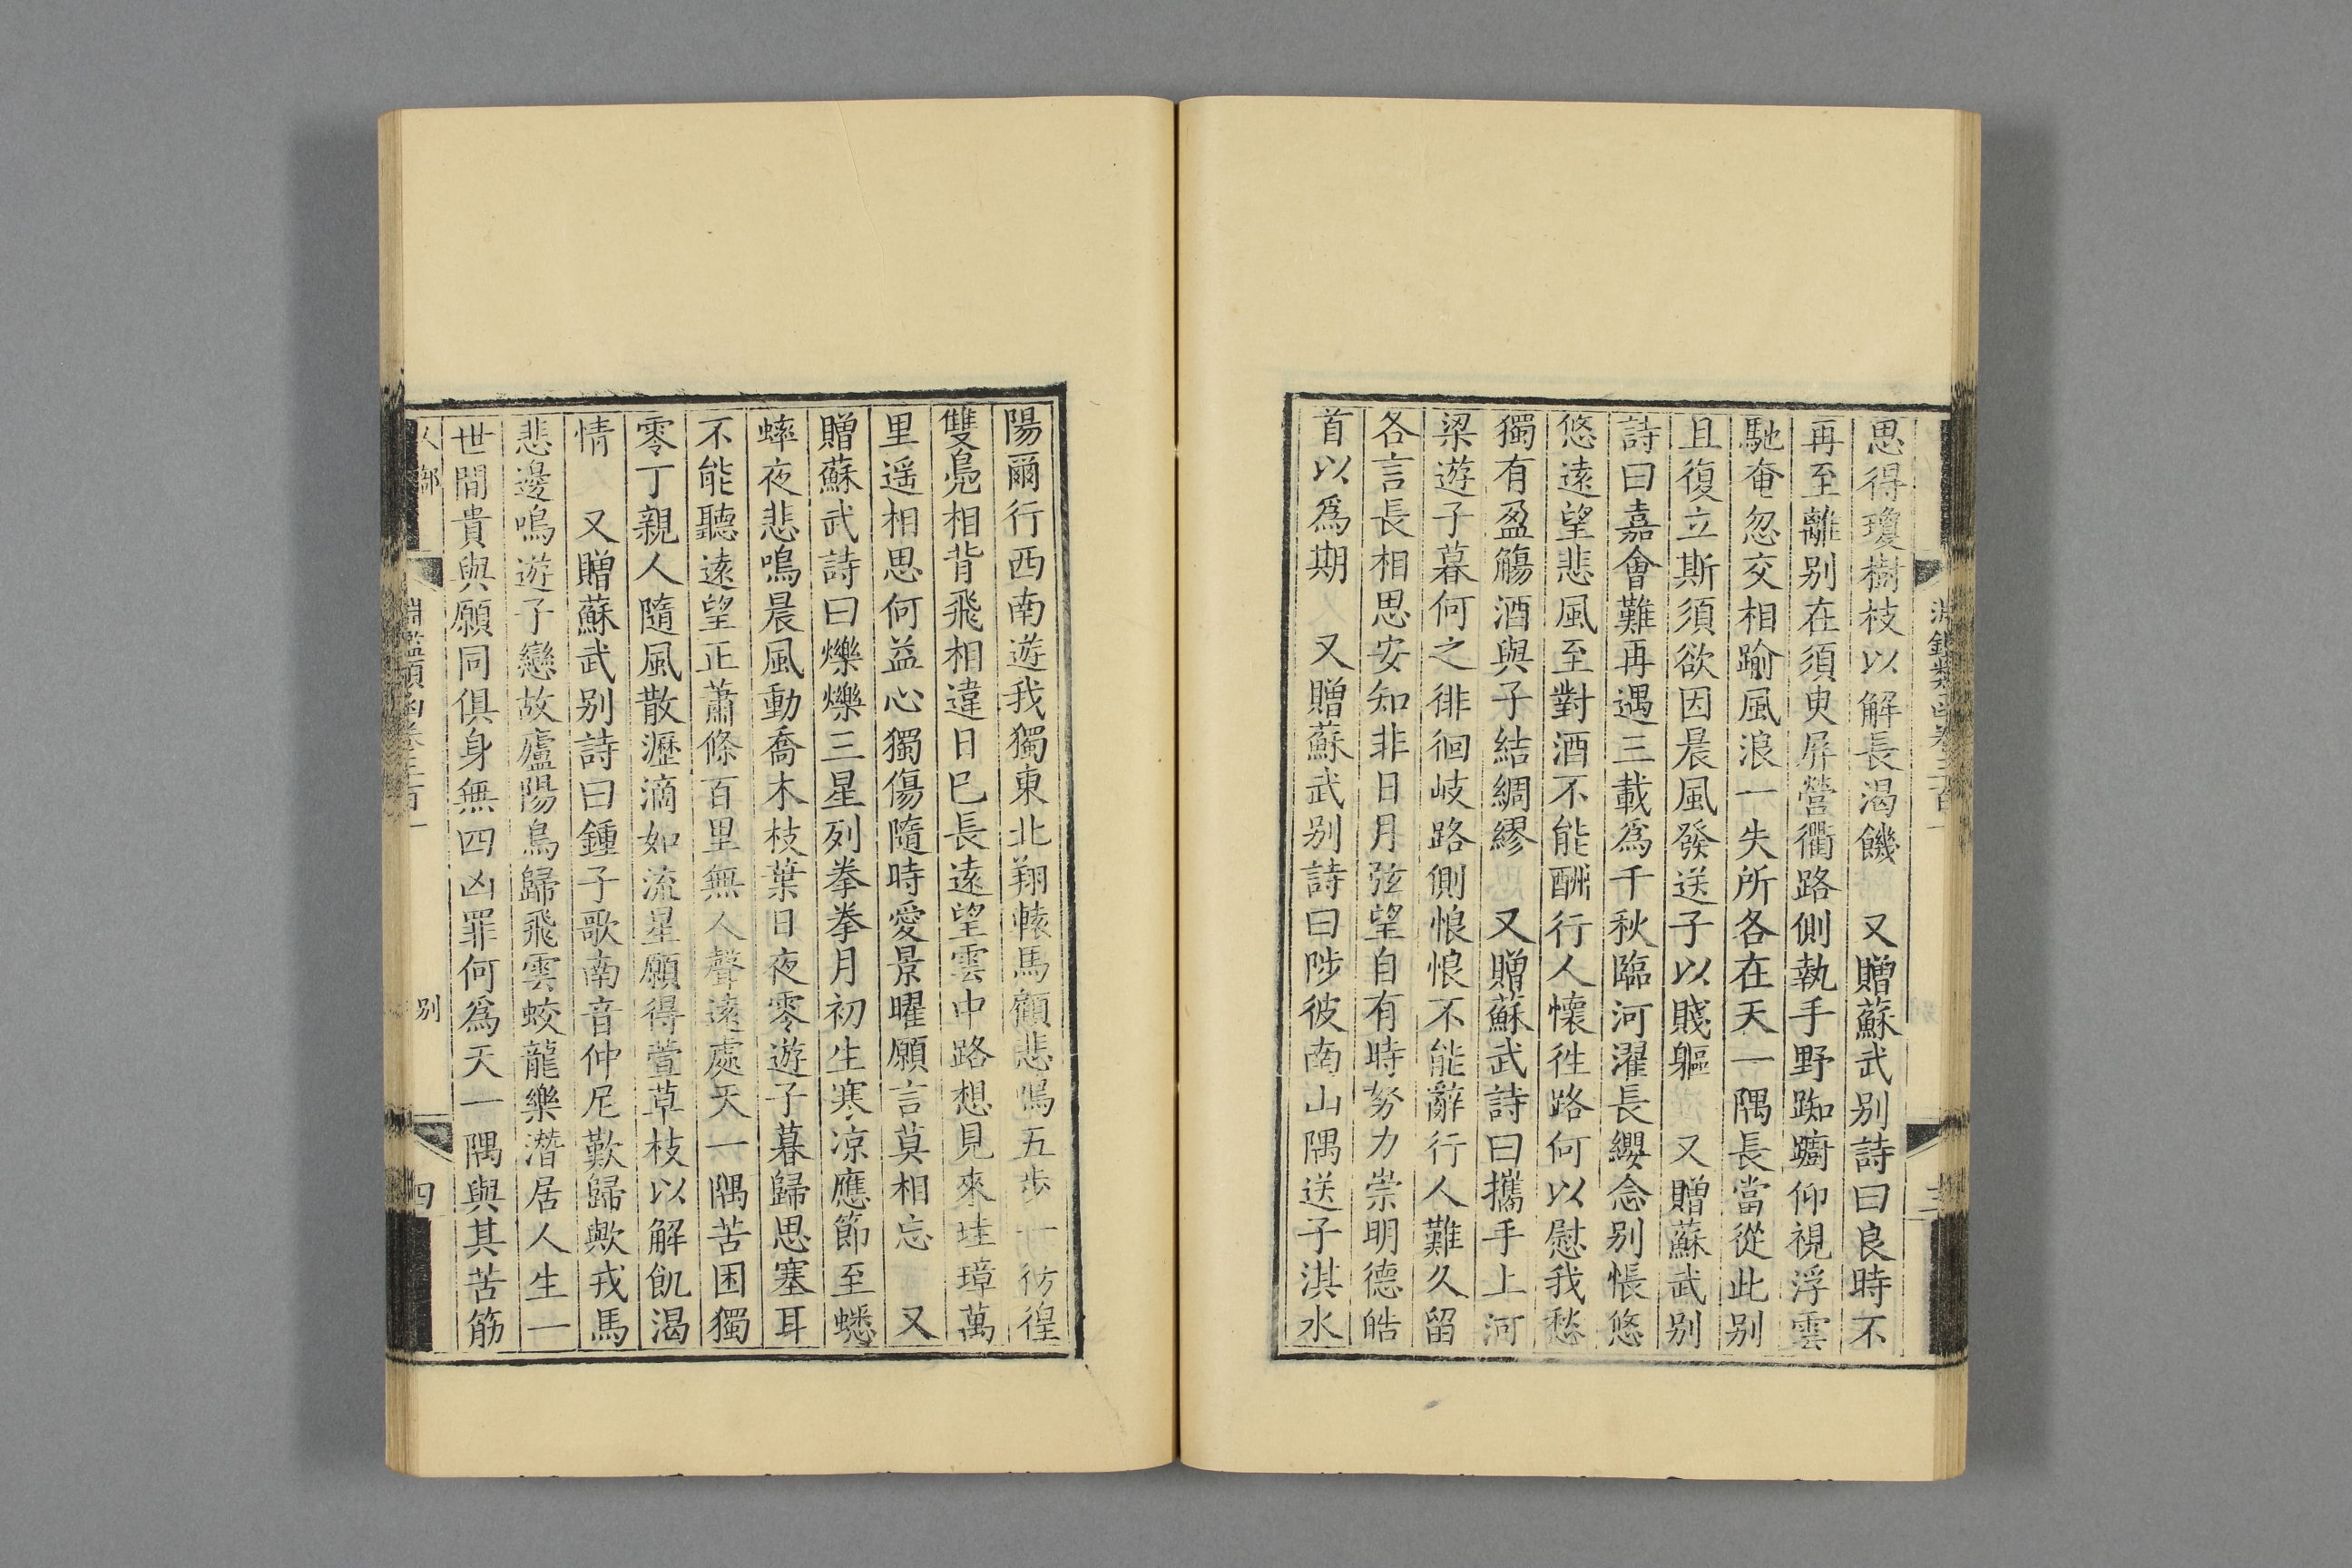 思得瓊樹枝以解長渴饑　又贈蘇武別詩曰良時不
再至離別在須臾屏營衢路側執手野踟躕仰視浮雲
馳奄忽交相踰風浪一失所各在天一隅長當從此別
且復立斯須欲因晨風發送子以賤軀　又贈蘇武別
詩曰嘉會難再遇三載爲千秋臨河濯長纓念別悵悠
悠遠望悲風至對酒不能酬行人懷徃路何以慰我愁
獨有盈觴酒與子結綢繆　又贈蘇武詩曰攜手上河
梁遊子暮何之徘徊岐路側悢悢不能辭行人難久留
各言長相思安知非日月弦望自有時努力崇明德皓
首以爲期　又贈蘇武別詩曰陟彼南山隅送子淇水
陽爾行西南遊我獨東北翔轅馬顧悲鳴五步一彷徨
雙鳧相背飛相違日巳長遠望雲中路想見來珪璋萬
里遥相思何益心獨傷隨時愛景曜願言莫相忘　又
贈蘇武詩曰爍爍三星列拳拳月初生寒凉應節至蟋
蟀夜悲鳴晨風動喬木枝葉日夜零遊子暮歸思塞耳
不能聽遠望正蕭條百里無人聲遠處天一隅苦困獨
零丁親人隨風散瀝滴如流星願得萱草枝以解飢渴
情　又贈蘇武別詩曰鍾子歌南音仲尼歎歸歟戎馬
悲邊鳴遊子戀故廬陽鳥歸飛雲蛟龍樂潛居人生一
世間貴與願同俱身無四凶罪何爲天一隅與其苦筋
人部　淵鑑類函卷三百一　別　四